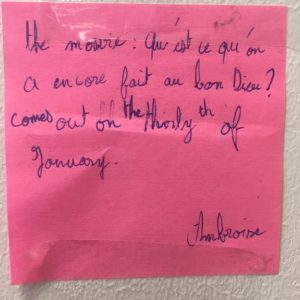 the movie : Qu'est ce qu'on
a encore fait au bon Dieu ?
comes out on the thirty th of
January.
Ambroise